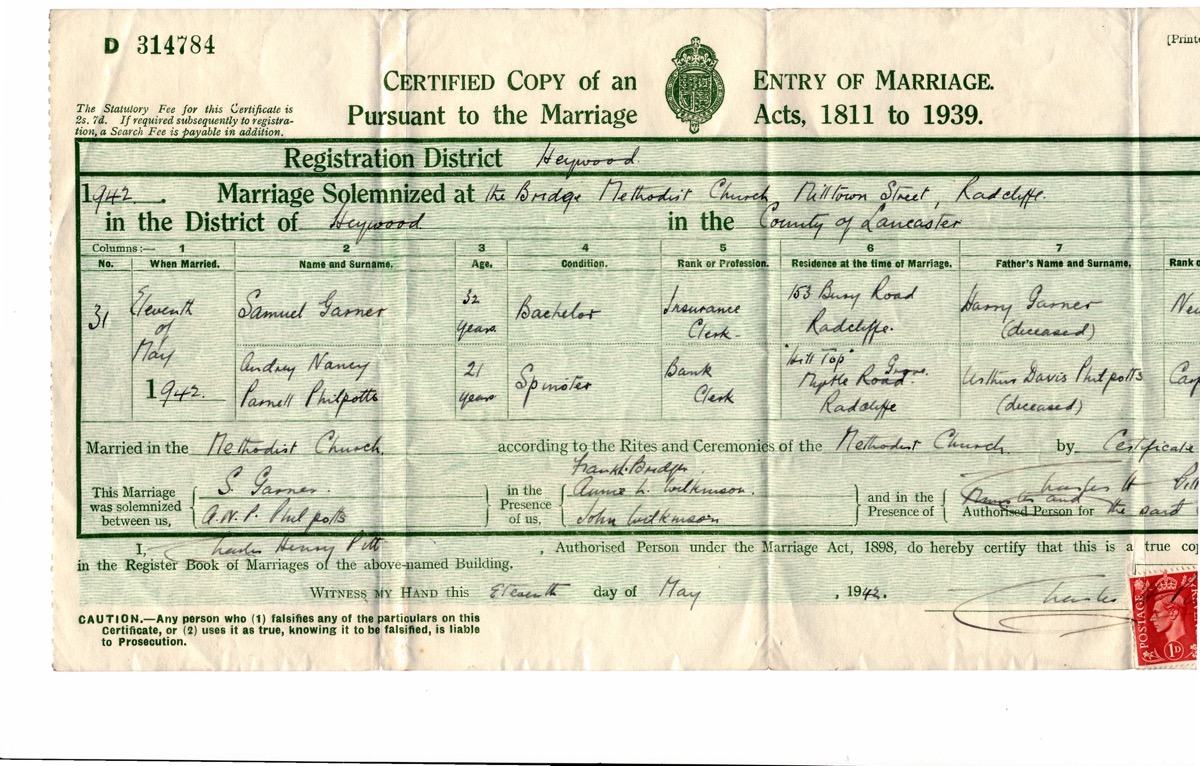 D 314784
[Printe
CERTIFIED COPY of an ENTRY OF MARRIAGE.
Pursuant to the Marriage Acts, 1811 to 1939.
The Statutory Fee for this Certificate is
2s. 7d. If required subsequently to registra-
tion, a Search Fee is payable in addition.
Registration District Heywood
1942. Marriage Solemnized at the Bridge Methodist Church Milltown Street, Radcliffe.
in the District of Heywood in the County of Lancaster
Columns:— 1 2 3 4 5 6 7
No. When Married. Name and Surname. Age. Condition. Rank or Profession. Residence at the time of Marriage. Father's Name and Surname. Rank o
31 Eleventh of May 1942.
Samuel Garner 32 years Bachelor Insurance Clerk 153 Bury Road Radcliffe. Harry Garner (deceased)
Audrey Nancy Parnell Philpotts 21 years Spinster Bank Clerk "Hill Top" Myrtle Road Grove. Radcliffe Arthur Davis Philpotts (deceased)
Married in the Methodist Church. according to the Rites and Ceremonies of the Methodist Church. by Certificate
This Marriage was solemnized between us, S. Garner. A.N.P. Philpotts
in the Presence of us, Frank Bridges. Annie L. Wilkinson. John Wilkinson
and in the Presence of Charles H Authorised Person for the said
I, Charles Henry Pitt, Authorised Person under the Marriage Act, 1898, do hereby certify that this is a true co
in the Register Book of Marriages of the above-named Building.
WITNESS MY HAND this Eleventh day of May, 1942.
Charles
CAUTION.—Any person who (1) falsifies any of the particulars on this
Certificate, or (2) uses it as true, knowing it to be falsified, is liable
to Prosecution.
POSTAGE
1D